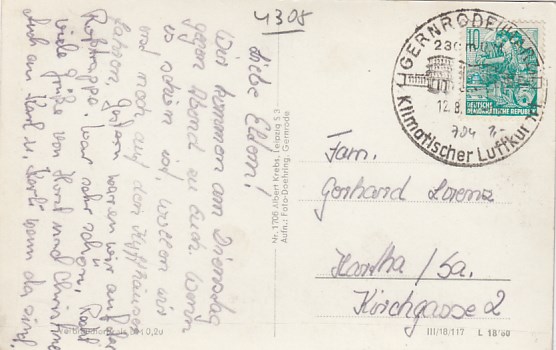 4305
Liebe Eltern!
Wir kommen am Dienstag
gegen Abend zu Euch. Wenn
es schön ist, wollen wir
noch auf den Kyffhäuser
fahren. Gestern waren wir auf der
Roßtrappe. War sehr schön.
viele Grüße von Horst und Christine
auch an Karl u. wenn du sind.
Verbraucherpreis DM 0,20
Nr. 1706 Albert Krebs, Leipzig S 3
Aufn.: Foto-Doehring, Gernrode
GERNRODE (HARZ)
230 m
12.8.
Klimatischer Luftkur
10
DEUTSCHE
DEMOKRATISCHE REPUBLIK
704 2-
Fam.
Gerhard Lorenz
Hartha/Sa.
Kirchgasse 2
III/18/117 L 18/60